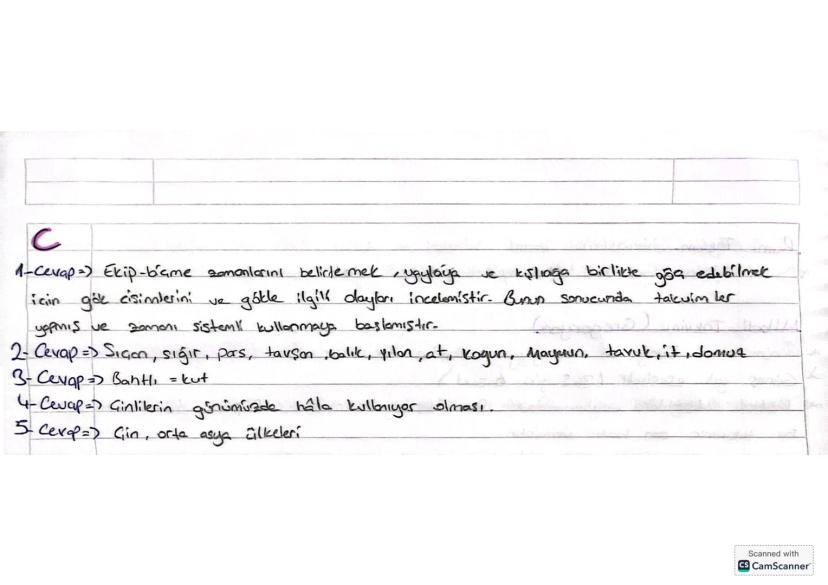 C
1-Cevap=> Ekip-biçme zamanlarını belirlemek, yaylaya ve kışlağa birlikte göç edebilmek
için gök cisimlerini ve gökle ilgili olayları incelemiştir. Bunun sonucunda takvimler
yapmış ve zamanı sistemli kullanmaya başlamıştır.
2-Cevap=> Sıçan, sığır, pars, tavşan, balık, yılan, at, koyun, maymun, tavuk, it, domuz
3-Cevap=> Bahtlı = kut
4-Cevap=> Çinlilerin günümüzde hâla kullanıyor olması.
5-Cevap=> Çin, orta asya ülkeleri
Scanned with
CS CamScanner